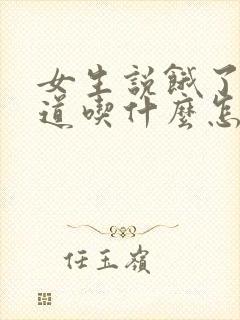 女生說餓了
道喫什麼怎
任玉嶺